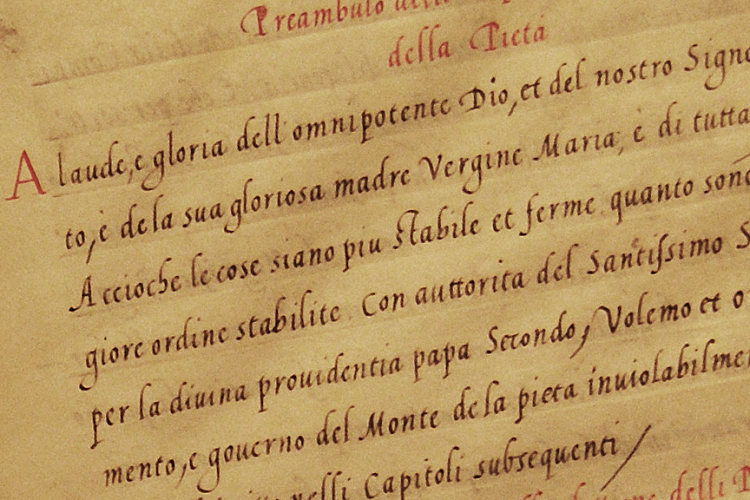 Preambulo
della Pietà
A laude, e gloria dell omnipotente Dio, et del nostro
to, è dela sua gloriosa madre Vergine Maria, è di tutta
Accioche le cose siano piu stabile et ferme quanto
giore ordine stabilite. Con auttorita del Santissimo
per la diuina prouidentia papa Secondo, Volemo et
mento, e gouerno del Monte dela pieta
nelli Capitoli subsequenti
delli